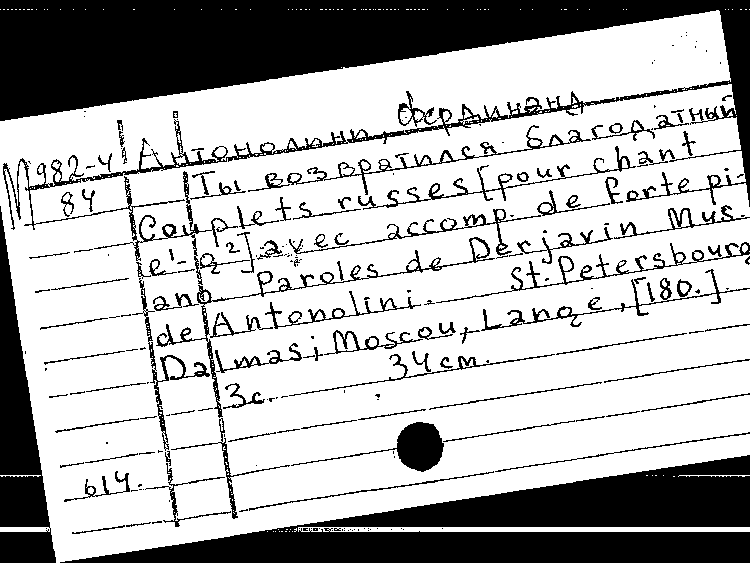 М982-4 Антонолини, Фердинанд
84 Ты возвратился благодатный
Couplets russes [pour chant
e¹-g²] avec accomp. de forte pi-
ano. Paroles de Derjavin Mus.
de Antonolini. St.-Petersbourg
Dalmas; Moscou, Lange, [180.]
3с. 34 см.
614.